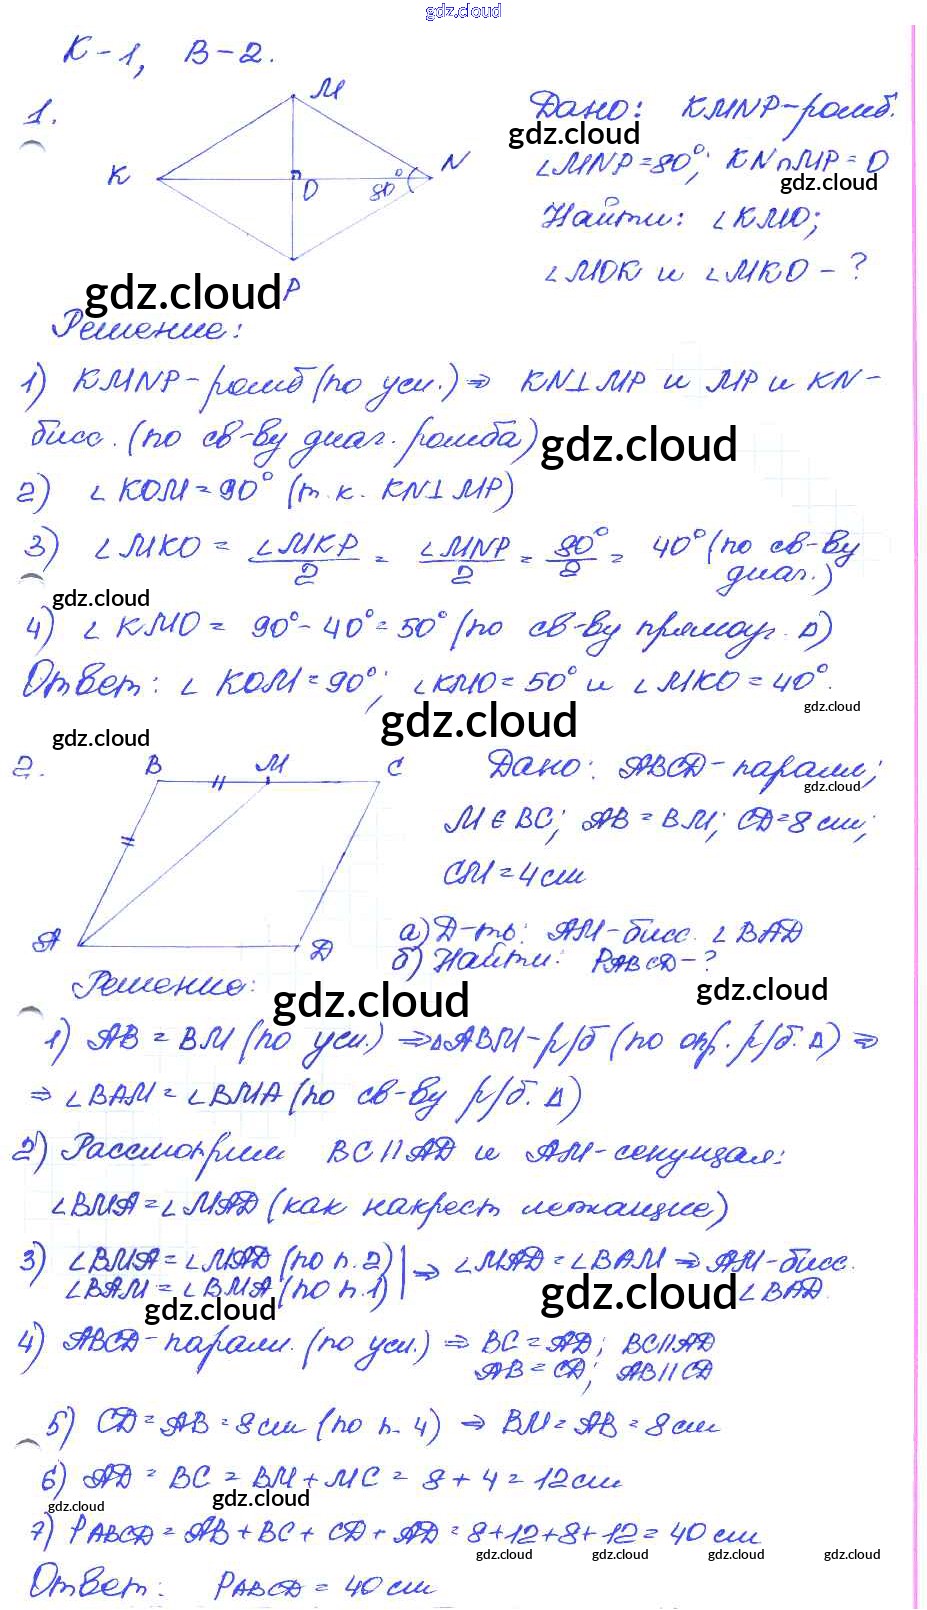 gdz.cloud
К-1, В-2.
1.
M
K
N
O
80°
P
Дано: KMNP-ромб.
gdz.cloud
∠MNP=80°; KN∩MP=O
gdz.cloud
Найти: ∠KMO;
∠MOK и ∠MKO-?
gdz.cloud
Решение:
1) KMNP-ромб (по усл.) ⇒ KN⊥MP и MP и KN-
бисс. (по св-ву диаг. ромба)
gdz.cloud
2) ∠KOM=90° (т.к. KN⊥MP)
3) ∠MKO = ∠MKP/2 = ∠MNP/2 = 80°/2 = 40° (по св-ву
диаг.)
gdz.cloud
4) ∠KMO = 90°-40°=50° (по св-ву прямоуг. Δ)
Ответ: ∠KOM=90°; ∠KMO=50° и ∠MKO=40°.
gdz.cloud
gdz.cloud
gdz.cloud
2.
B
M
C
A
D
Дано: ABCD-паралл;
gdz.cloud
M∈BC; AB=BM; CD=8см;
CM=4см
а) Д-ть: AM-бисс. ∠BAD
б) Найти: PABCD-?
Решение:
gdz.cloud
gdz.cloud
1) AB=BM (по усл.) ⇒ΔABM-р/б (по опр. р/б. Δ) ⇒
⇒ ∠BAM=∠BMA (по св-ву р/б. Δ)
2) Рассмотрим BC||AD и AM-секущая:
∠BMA=∠MAD (как накрест лежащие)
3) ∠BMA=∠MAD (по п.2) | ⇒ ∠MAD=∠BAM ⇒ AM-бисс.
∠BAM=∠BMA (по п.1) | ∠BAD.
gdz.cloud
gdz.cloud
4) ABCD-паралл. (по усл.) ⇒ BC=AD; BC||AD
AB=CD; AB||CD
5) CD=AB=8см (по п. 4) ⇒ BM=AB=8см
6) AD=BC=BM+MC=8+4=12см
gdz.cloud
gdz.cloud
7) PABCD=AB+BC+CD+AD=8+12+8+12=40см
gdz.cloud
gdz.cloud
gdz.cloud
gdz.cloud
Ответ: PABCD=40см